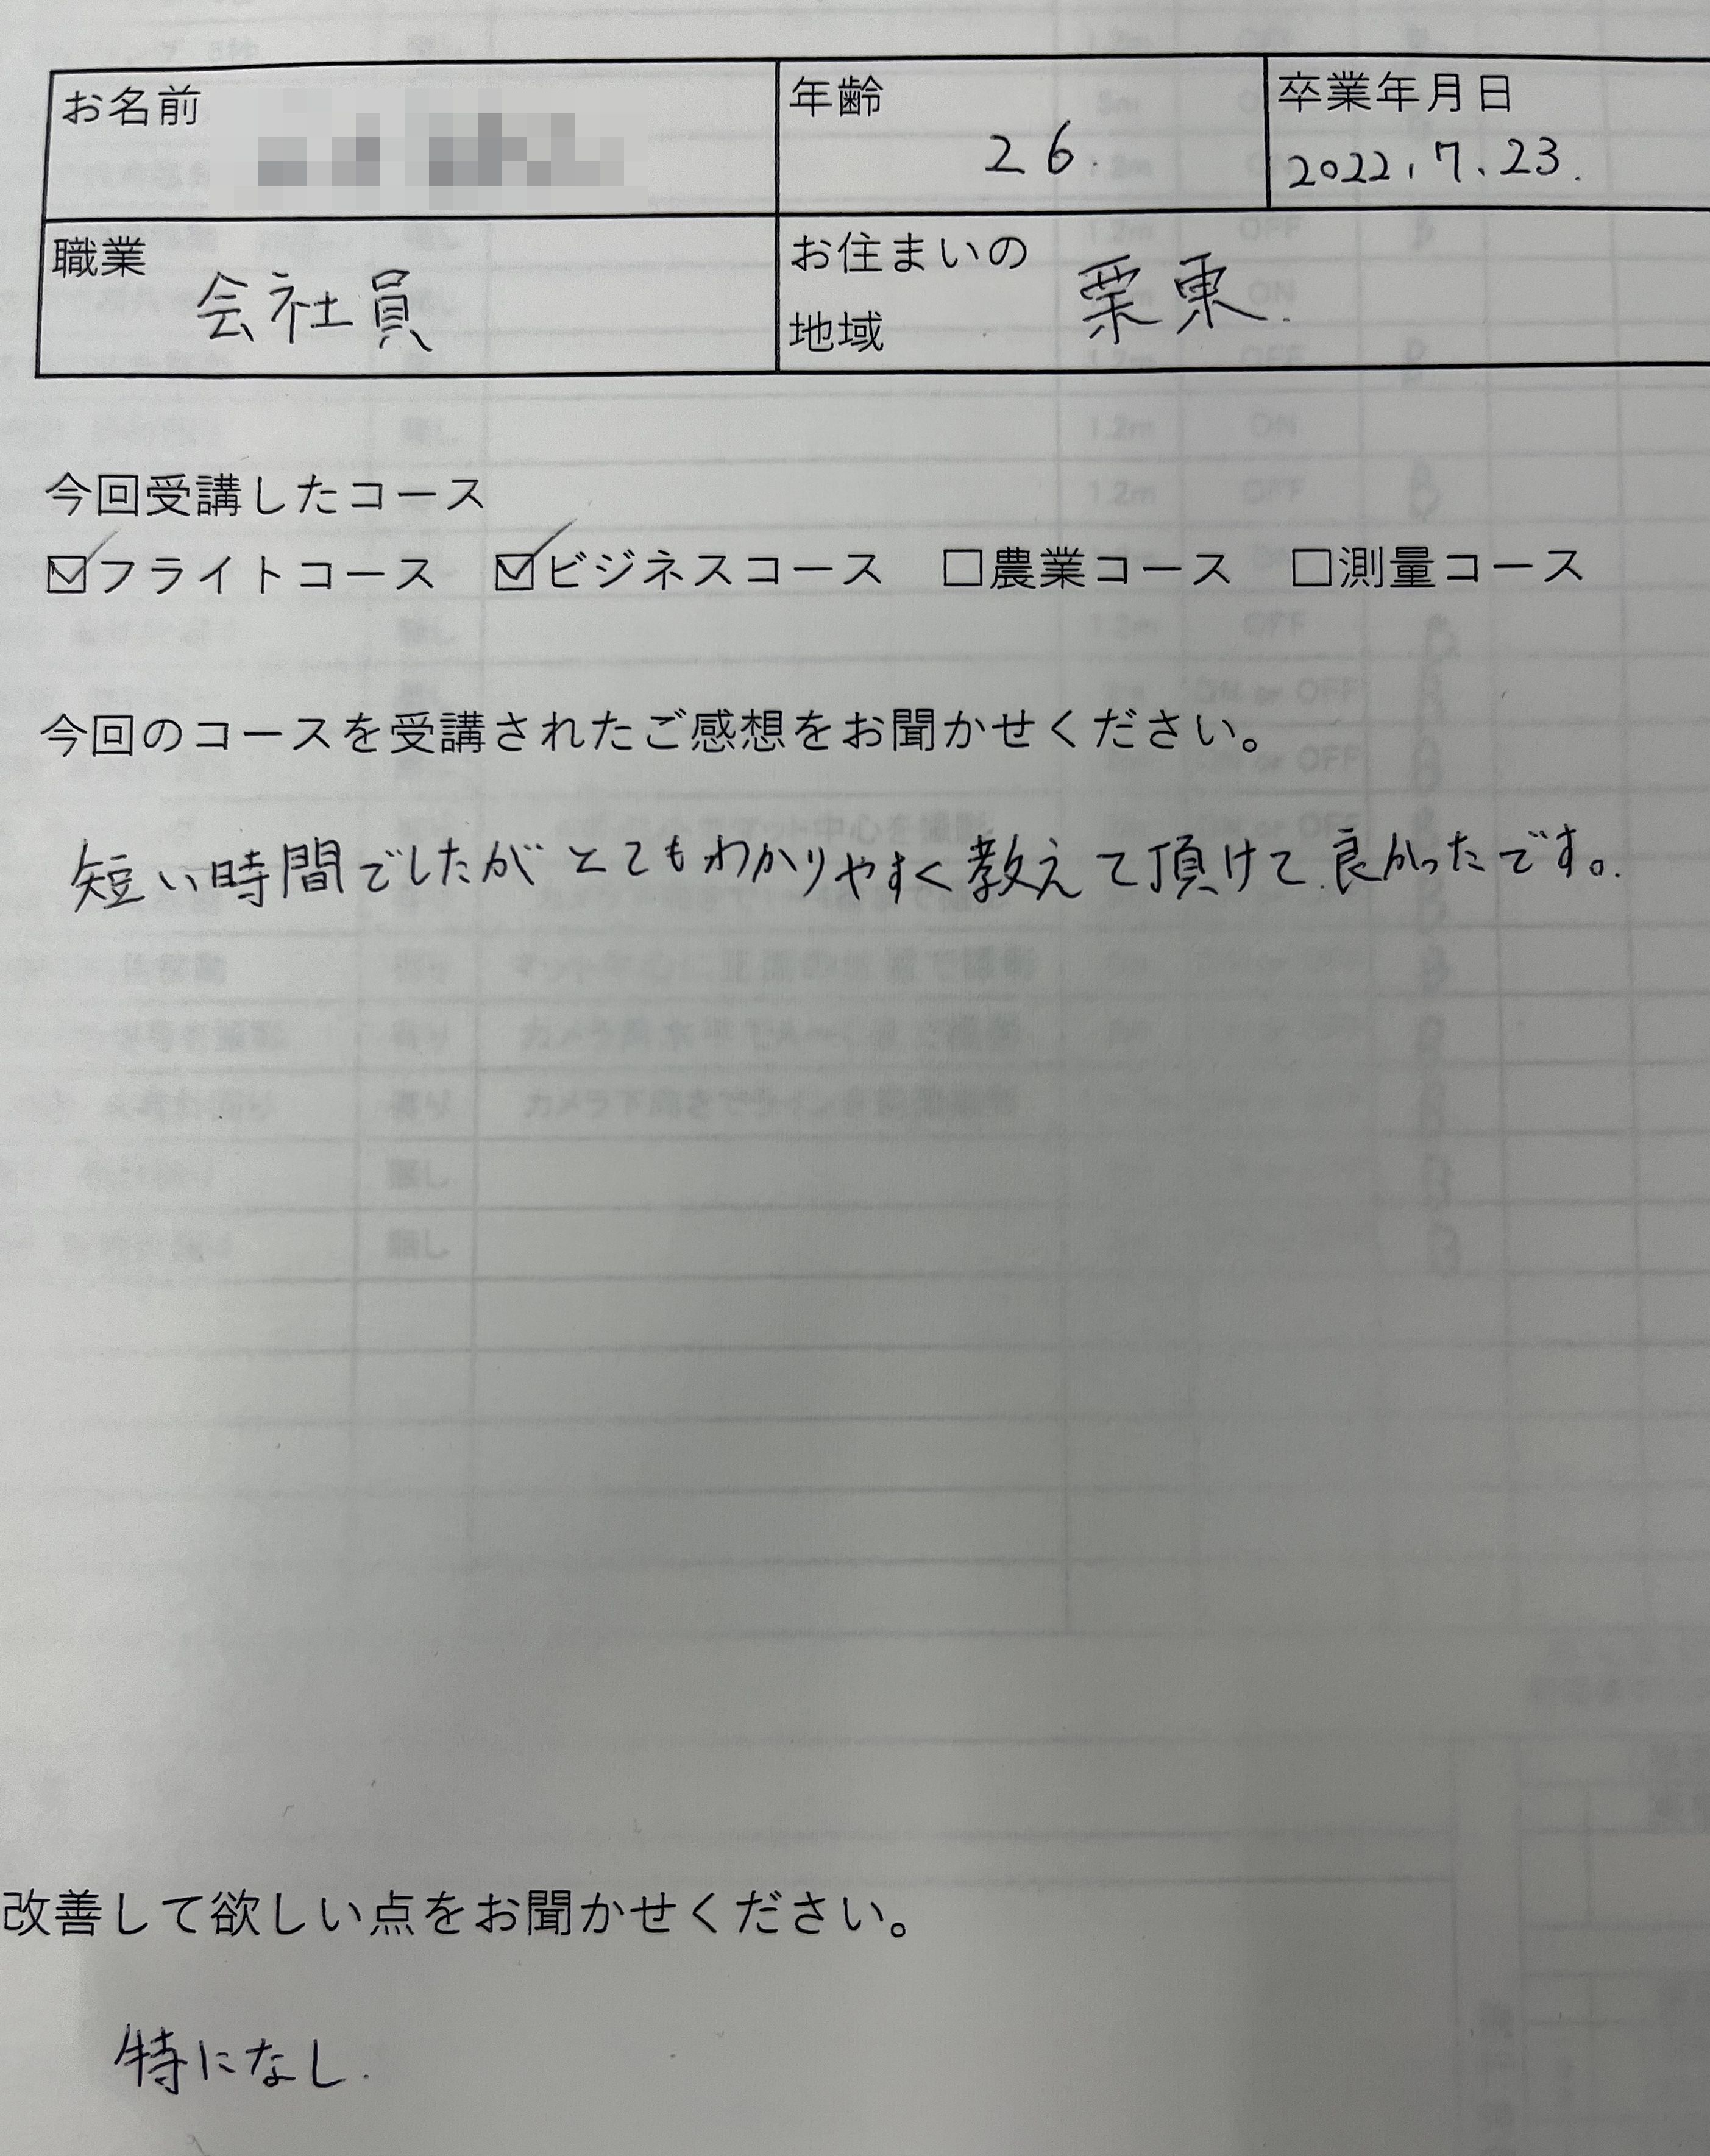 お名前 年齢 卒業年月日
26. 2022.7.23.
職業 会社員 お住まいの地域 栗東.
今回受講したコース
☑フライトコース ☑ビジネスコース □農業コース □測量コース
今回のコースを受講されたご感想をお聞かせください。
短い時間でしたがとてもわかりやすく教えて頂けて良かったです。
改善して欲しい点をお聞かせください。
特になし.